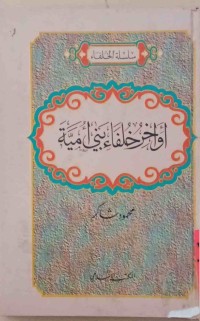 سلسلة الخلفاء
أواخر خلفاء بني أمية
محمود شاكر
المكتب الإسلامي